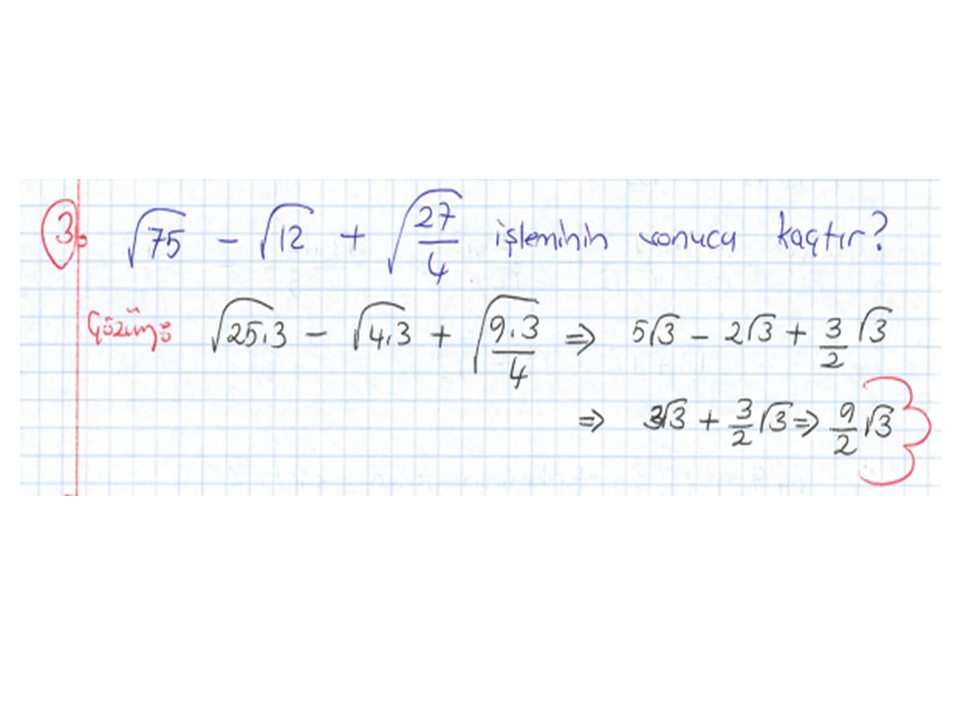 3. √75 − √12 + √(27/4) işleminin sonucu kaçtır?
Çözüm: √(25.3) − √(4.3) + √(9.3/4) ⇒ 5√3 − 2√3 + 3/2 √3
⇒ 3√3 + 3/2 √3 ⇒ 9/2 √3